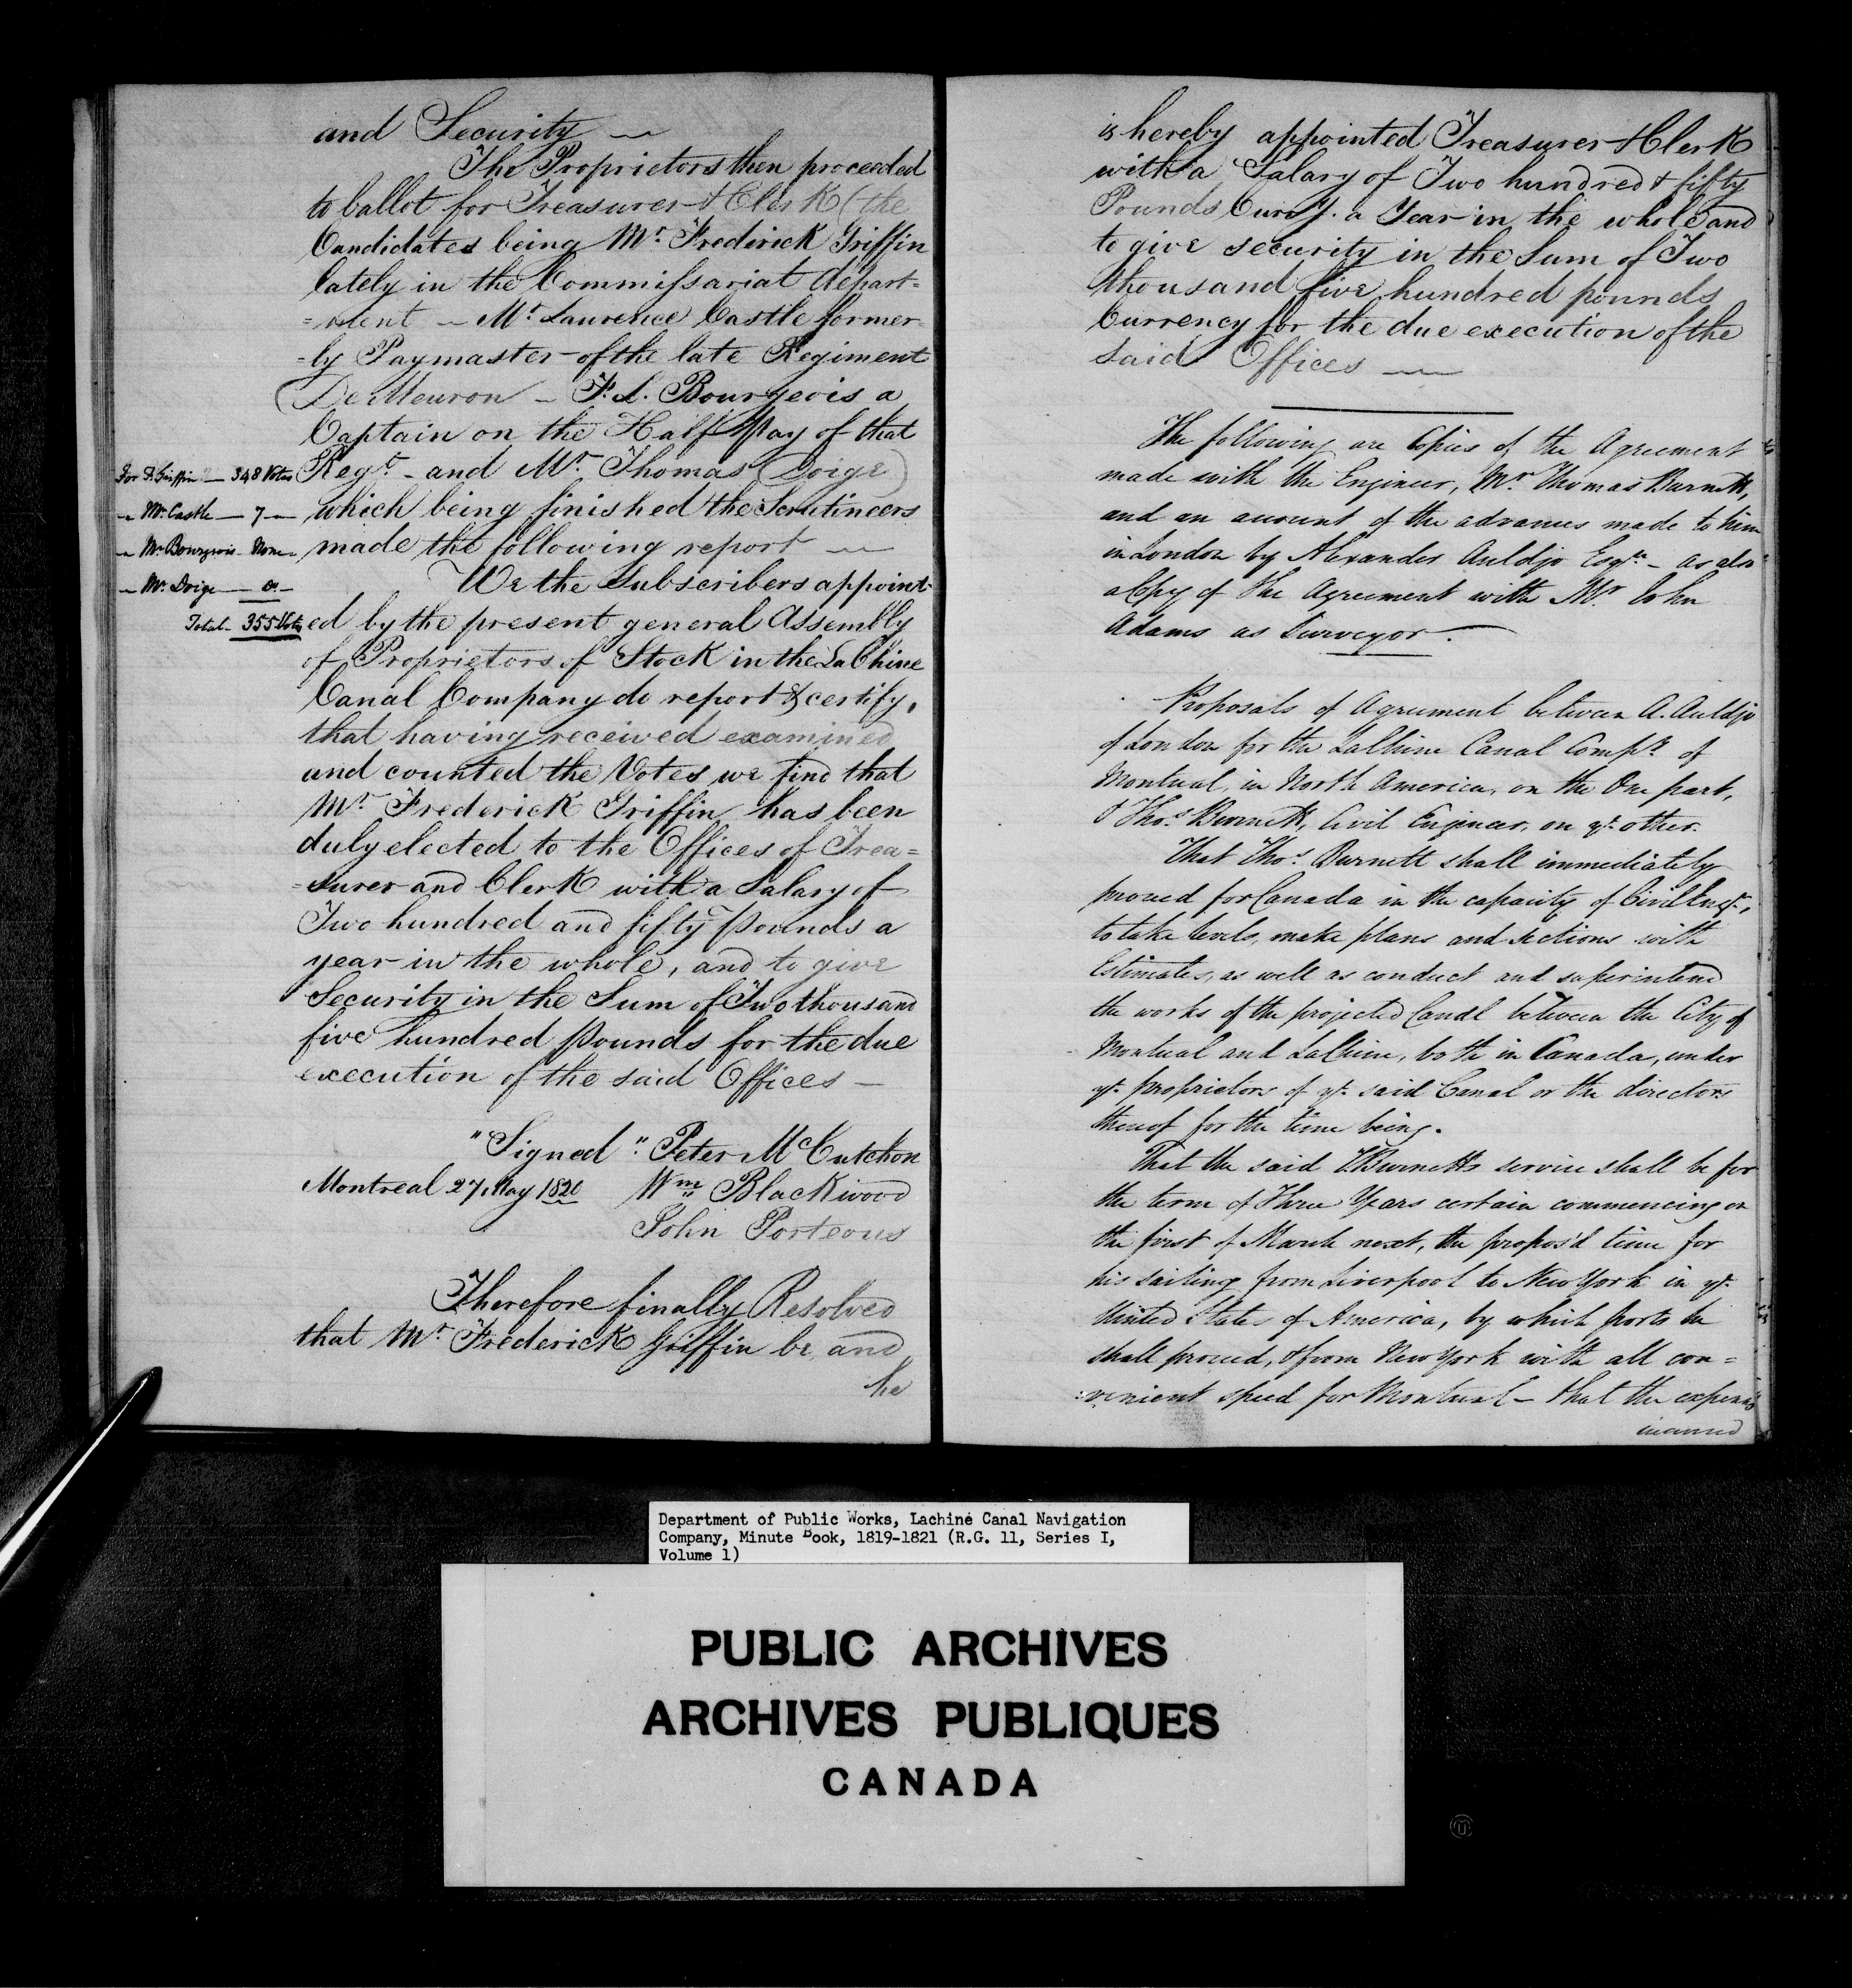 and Security —
The Proprietors then proceeded
to ballot for Treasurer & Clerk (the
Candidates being Mr. Frederick Griffin
lately in the Commissariat depart=
=ment — Mr. Laurence Castle former=
=ly Paymaster of the late Regiment
De Meuron — F. L. Bourgeois a
Captain on the Half Pay of that
Regt. — and Mr. Thomas Doige)
which being finished the Scrutineers
made the following report —
For F. Griffin — 348 Votes
" Mr. Castle — 7 —
" Mr. Bourgeois — None
" Mr. Doige — 0 —
Total — 355 Votes
We the Subscribers appoint=
ed by the present general Assembly
of Proprietors of Stock in the LaChine
Canal Company do report & certify,
that having received examined
and counted the Votes we find that
Mr. Frederick Griffin has been
duly elected to the Offices of Trea=
=surer and Clerk with a Salary of
Two hundred and fifty Pounds a
year in the whole, and to give
Security in the Sum of Two thousand
five hundred Pounds for the due
execution of the said Offices —
"Signed" Peter McCutchon
Montreal 27 May 1820 Wm. Blackwood
John Porteous
Therefore finally Resolved
that Mr. Frederick Griffin be and
he
is hereby appointed Treasurer & Clerk
with a Salary of Two hundred & fifty
Pounds Curry. a Year in the whole and
to give security in the Sum of Two
thousand five hundred pounds
Currency for the due execution of the
said Offices —
The following are Copies of the Agreement
made with the Engineer, Mr. Thomas Burnett,
and an account of the advances made to him
in London by Alexander Auldjo Esqre. — as also
a Copy of the Agreement with Mr. John
Adams as Surveyor.
Proposals of Agreement between A. Auldjo
of London for the LaChine Canal Compy. of
Montreal, in North America, on the One part,
& Thos. Burnett, Civil Engineer, on ye. other.
That Thos. Burnett shall immediately
proceed for Canada in the capacity of Civil Engr.,
to take levels, make plans and sections with
Estimates, as well as conduct and superintend
the works of the projected Canal between the City of
Montreal and LaChine, both in Canada, under
ye. proprietors of ye. said Canal or the directors
thereof for the time being.
That the said TBurnetts service shall be for
the term of Three Years certain commencing on
the first of March next, the propos'd time for
his sailing from Liverpool to New York in ye.
United States of America, by which ports he
shall proceed, & from New York with all con=
=venient speed for Montreal — that the expenses
incurred
Department of Public Works, Lachine Canal Navigation
Company, Minute Book, 1819-1821 (R.G. 11, Series I,
Volume 1)
PUBLIC ARCHIVES
ARCHIVES PUBLIQUES
CANADA